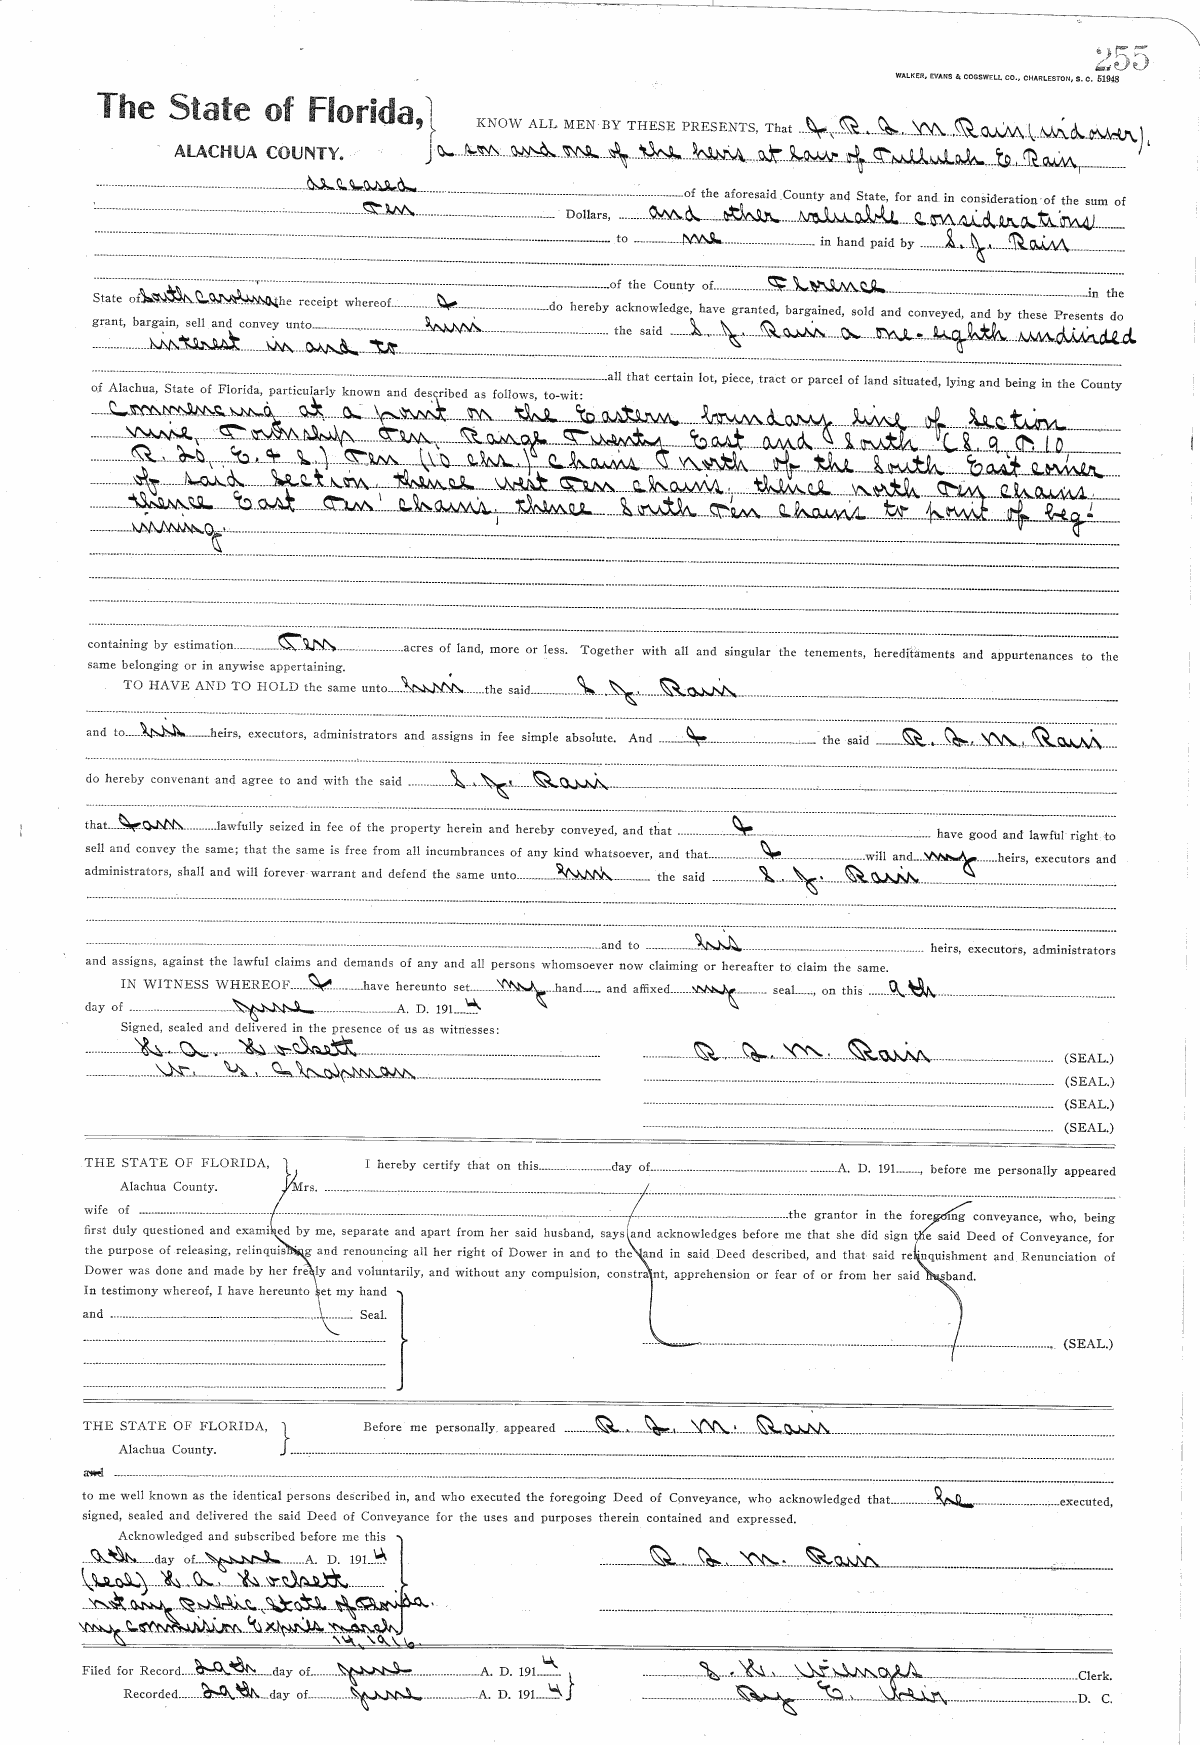 255
WALKER, EVANS & COGSWELL CO., CHARLESTON, S. C. 51948
The State of Florida,
ALACHUA COUNTY.
KNOW ALL MEN BY THESE PRESENTS, That I, R. I. M. Rain (widower),
a son and one of the heirs at law of Tullulah E. Rain,
deceased of the aforesaid County and State, for and in consideration of the sum of
Ten Dollars, and other valuable considerations
to me in hand paid by S. J. Rain
of the County of Florence in the
State of South Carolina the receipt whereof I do hereby acknowledge, have granted, bargained, sold and conveyed, and by these Presents do
grant, bargain, sell and convey unto him the said S. J. Rain a one-eighth undivided
interest in and to
all that certain lot, piece, tract or parcel of land situated, lying and being in the County
of Alachua, State of Florida, particularly known and described as follows, to-wit:
Commencing at a point on the Eastern boundary line of Section
nine, Township Ten, Range Twenty East and South (S. 9, T. 10
R. 20, E. & S.) Ten (10 chs.) chains north of the South East corner
of said Section thence west Ten chains, thence north Ten chains,
thence East Ten chains, thence South Ten chains to point of beg-
inning.
containing by estimation Ten acres of land, more or less. Together with all and singular the tenements, hereditaments and appurtenances to the
same belonging or in anywise appertaining.
TO HAVE AND TO HOLD the same unto him the said S. J. Rain
and to his heirs, executors, administrators and assigns in fee simple absolute. And I the said R. I. M. Rain
do hereby convenant and agree to and with the said S. J. Rain
that I am lawfully seized in fee of the property herein and hereby conveyed, and that I have good and lawful right to
sell and convey the same; that the same is free from all incumbrances of any kind whatsoever, and that I will and my heirs, executors and
administrators, shall and will forever warrant and defend the same unto him the said S. J. Rain
and to his heirs, executors, administrators
and assigns, against the lawful claims and demands of any and all persons whomsoever now claiming or hereafter to claim the same.
IN WITNESS WHEREOF I have hereunto set my hand and affixed my seal, on this 9th
day of June A. D. 1914
Signed, sealed and delivered in the presence of us as witnesses:
H. A. Hockett R I. M. Rain (SEAL.)
W. G. Chapman (SEAL.)
(SEAL.)
(SEAL.)
THE STATE OF FLORIDA, I hereby certify that on this day of A. D. 191 , before me personally appeared
Alachua County. Mrs.
wife of the grantor in the foregoing conveyance, who, being
first duly questioned and examined by me, separate and apart from her said husband, says and acknowledges before me that she did sign the said Deed of Conveyance, for
the purpose of releasing, relinquishing and renouncing all her right of Dower in and to the land in said Deed described, and that said relinquishment and Renunciation of
Dower was done and made by her freely and voluntarily, and without any compulsion, constraint, apprehension or fear of or from her said husband.
In testimony whereof, I have hereunto set my hand
and Seal.
(SEAL.)
THE STATE OF FLORIDA, Before me personally appeared R. I. M. Rain
Alachua County.
and
to me well known as the identical persons described in, and who executed the foregoing Deed of Conveyance, who acknowledged that he executed,
signed, sealed and delivered the said Deed of Conveyance for the uses and purposes therein contained and expressed.
Acknowledged and subscribed before me this
9th day of June A. D. 1914 R I. M. Rain
(Seal) H. A. Hockett
Notary Public, State of Florida.
My Commission Expires March
14, 1916.
Filed for Record 29th day of June A. D. 1914 S. H. Wienges Clerk.
Recorded 29th day of June A. D. 1914 By E. Weir D. C.